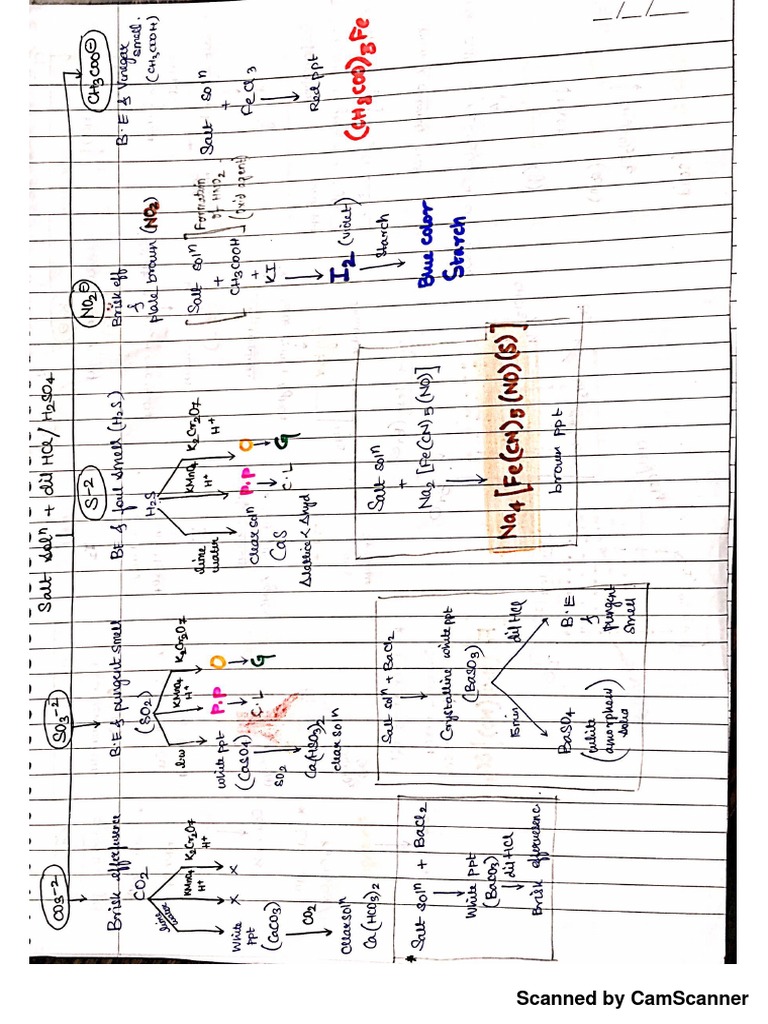 Salt soln + dil HCl/H2SO4
CO3-2
Brisk effervescence
CO2
lime water
KMnO4
H+
K2Cr2O7
H+
White ppt
(CaCO3)
x
x
CO2
clear soln
Ca(HCO3)2
* Salt soln + BaCl2
White ppt
(BaCO3)
dil HCl
Brisk effervescence.
SO3-2
B.E & pungent smell
(SO2)
l.w
KMnO4
H+
K2Cr2O7
White ppt
(CaSO4)
P.P
C.L
O
G
SO2
Ca(HSO3)2
clear soln
Salt soln + BaCl2
Crystalline white ppt
(BaSO3)
15min
dil HCl
BaSO4
(white
amorphous
solid)
B.E
&
pungent
smell
S-2
BE & foul smell (H2S)
H2S
lime
water
KMnO4
H+
K2Cr2O7
H+
clear soln
CaS
Δlattice < Δhyd
P.P
C.L
O
G
Salt soln
+
Na2[Fe(CN)5(NO)]
Na4[Fe(CN)5(NO)(S)]
brown ppt
NO2⊖
Brisk eff
&
brown (NO2)
[Salt soln
+
CH3COOH]
+
KI
[Formation
of HNO2
(oxid agent)
I2 (violet)
starch
Blue color
Starch
CH3COO⊖
B.E & Vinegar
smell.
(CH3COOH)
Salt soln
+
FeCl3
Red ppt
(CH3COO)3Fe
_/_/_
Scanned by CamScanner